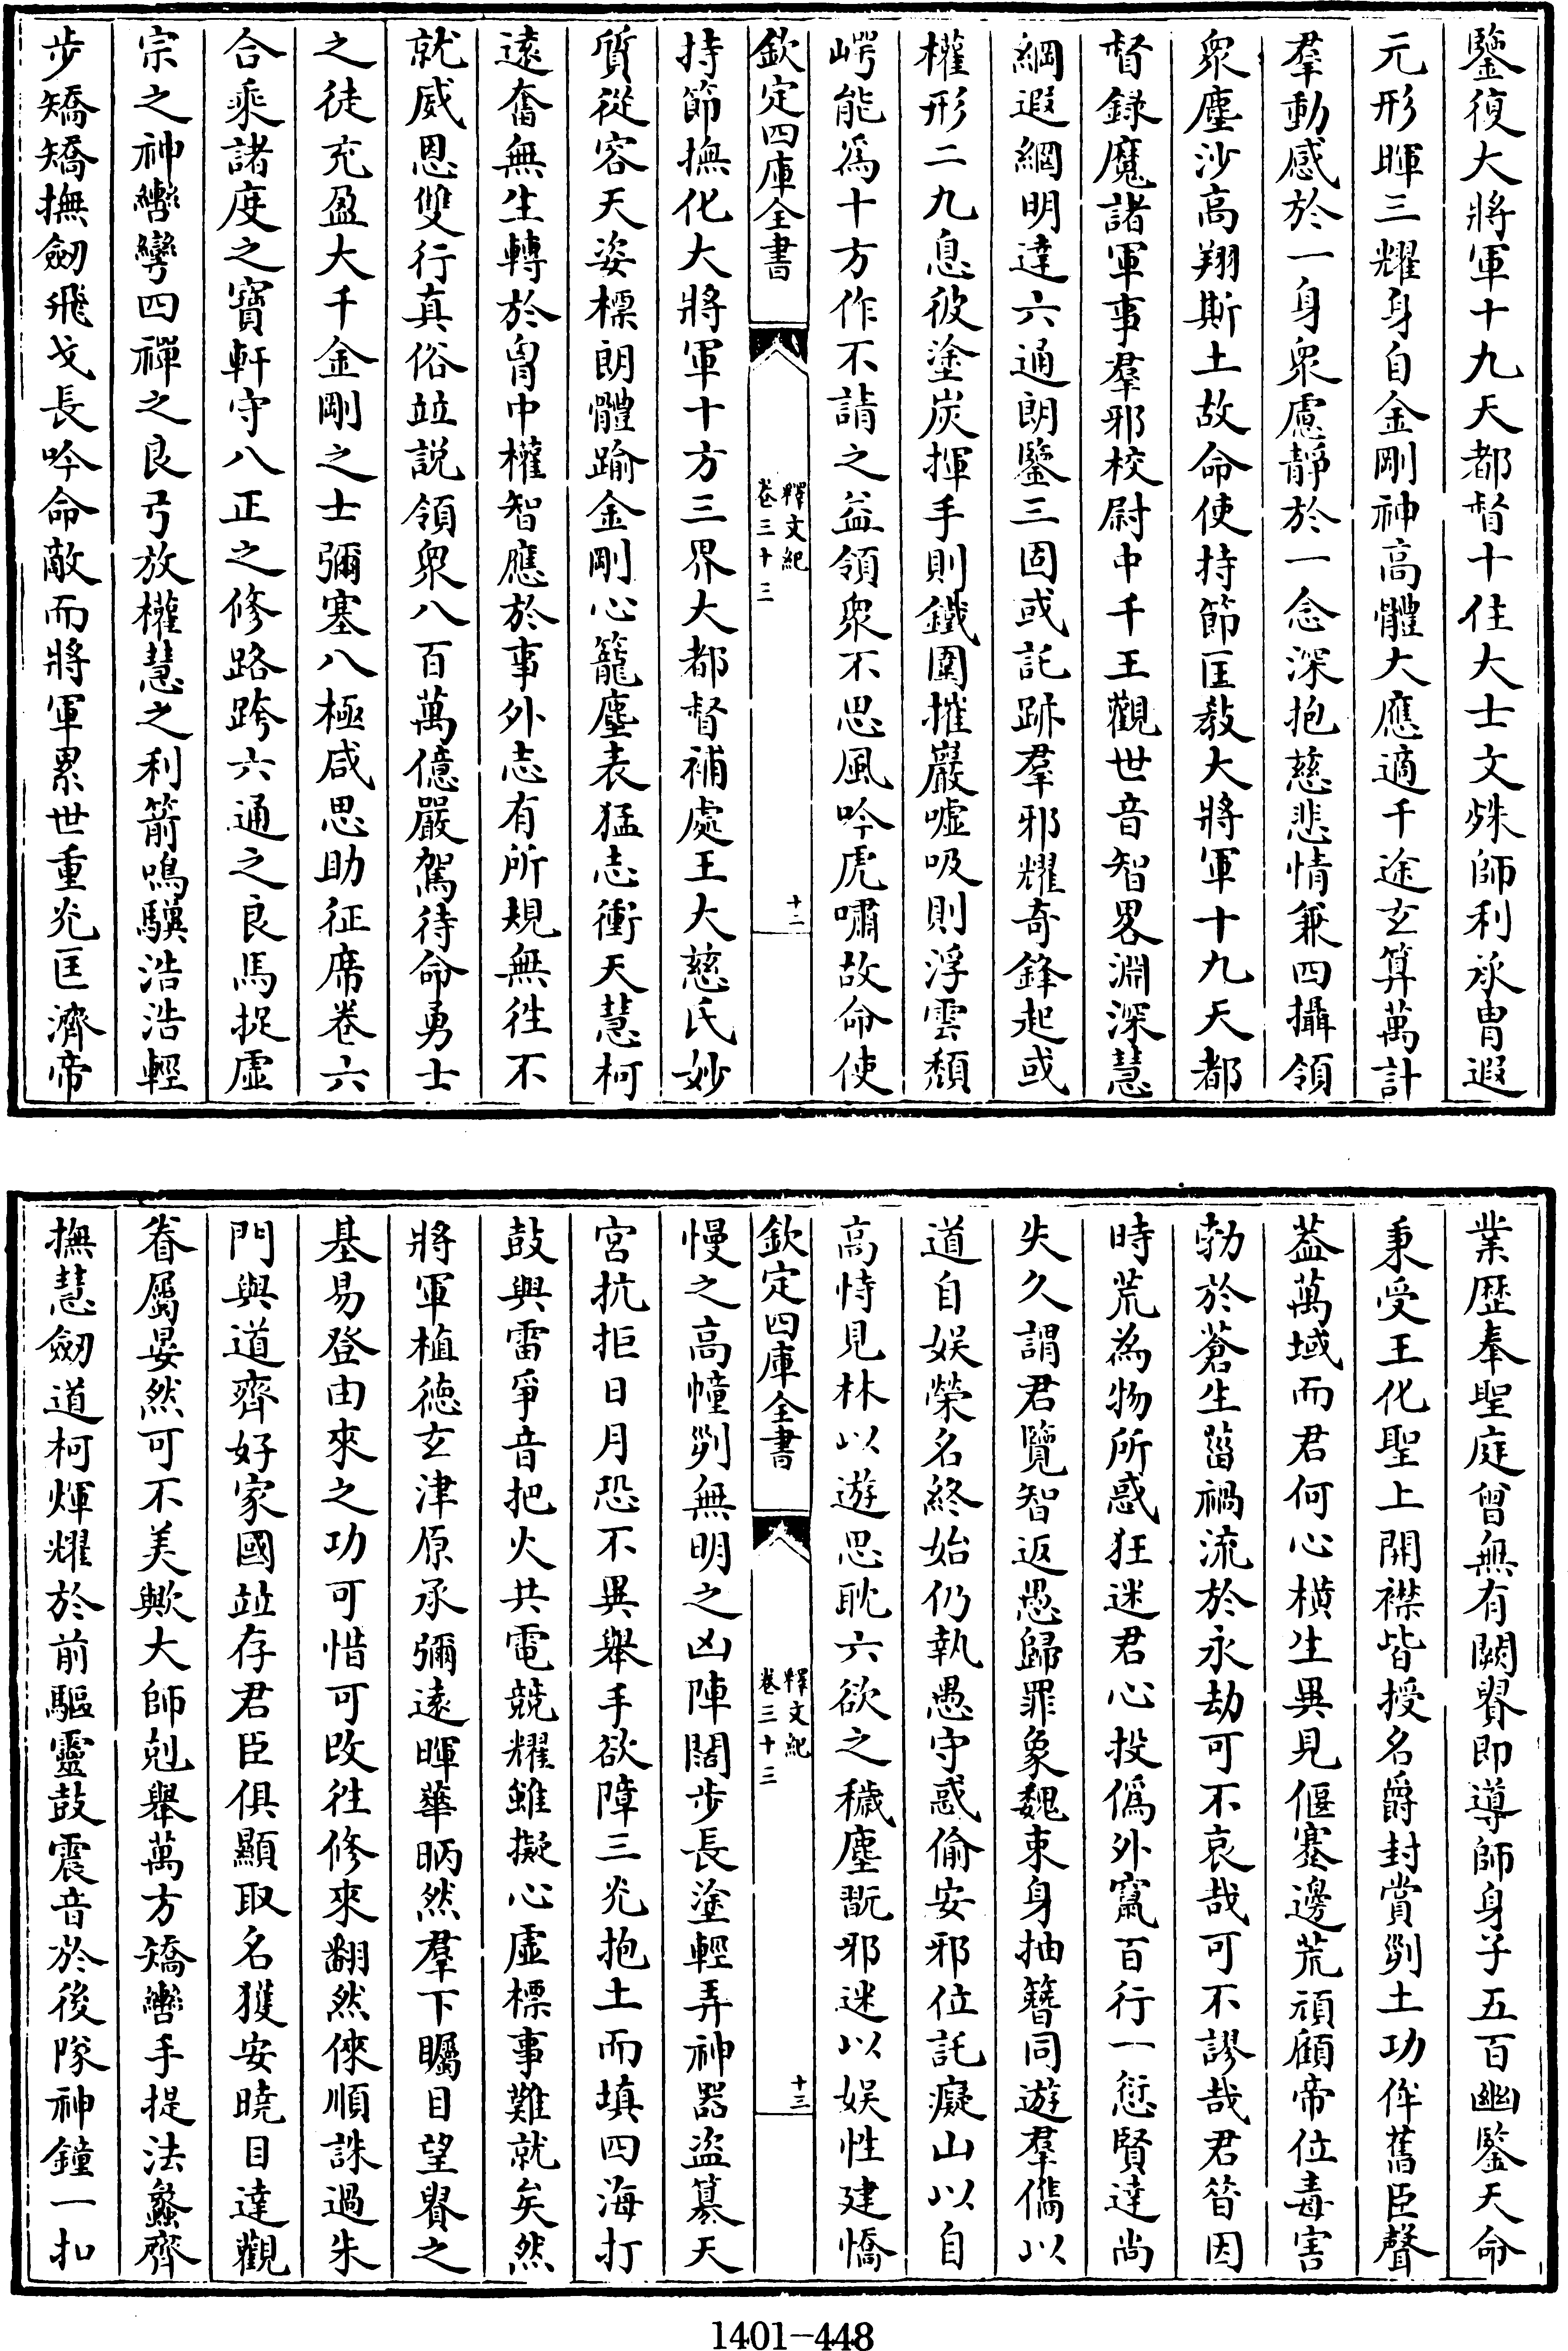 鑒復大將軍十九天都督十住大士文殊師利承胄遐
元形暉三耀身自金剛神高體大應適千途玄算萬計
羣動感於一身衆慮靜於一念深抱慈悲情兼四攝領
衆塵沙高翔斯土故命使持節匡教大將軍十九天都
督録魔諸軍事羣邪校尉中千王觀世音智畧淵深慧
綱遐網明達六通朗鑒三固或託跡羣邪耀奇鋒起或
權形二九息彼塗炭揮手則鐵圍摧巖嘘吸則浮雲頽
崿能爲十方作不請之益領衆不思風吟虎嘯故命使
欽定四庫全書
釋文紀
卷三十三
十二
持節撫化大將軍十方三界大都督補處王大慈氏妙
質從容天姿標朗體踰金剛心籠塵表猛志衝天慧柯
遠奮無生轉於胷中權智應於事外志有所規無徃不
就威恩雙行真俗竝説領衆八百萬億嚴駕待命勇士
之徒充盈大千金剛之士彌塞八極咸思助征席卷六
合乘諸度之寶軒守八正之修路跨六通之良馬捉虚
宗之神轡彎四禪之良弓放權慧之利箭鳴驥浩浩輕
步矯矯撫劒飛戈長吟命敵而將軍累世重光匡濟帝
業歴奉聖庭曾無有闕賢即導師身子五百幽鑒天命
秉受王化聖上開襟皆授名爵封賞列土功侔舊臣聲
葢萬域而君何心横生異見偃蹇邊荒頑顧帝位毒害
勃於蒼生菑禍流於永劫可不哀哉可不謬哉君昔因
時荒為物所惑狂迷君心投僞外竄百行一愆賢達尚
失久謂君覽智返愚歸罪象魏束身抽簪同遊羣儁以
道自娱榮名終始仍執愚守惑偷安邪位託癡山以自
高恃見林以遊思耽六欲之穢塵翫邪迷以娱性建憍
欽定四庫全書
釋文紀
卷三十三
十三
慢之高幢列無明之凶陣闊步長塗輕弄神器盜簒天
宮抗拒日月恐不異舉手欲障三光抱土而填四海打
鼓與雷爭音把火共電競耀雖擬心虚標事難就矣然
將軍植徳玄津原承彌遠暉華昞然羣下矚目望賢之
基易登由來之功可惜可改徃修來翻然倈順誅過朱
門與道齊好家國竝存君臣俱顯取名獲安曉目達觀
眷屬晏然可不美歟大師剋舉萬方矯轡手提法蠡齊
撫慧劒道柯煇耀於前驅靈鼓震音於後隊神鐘一扣
1401-448